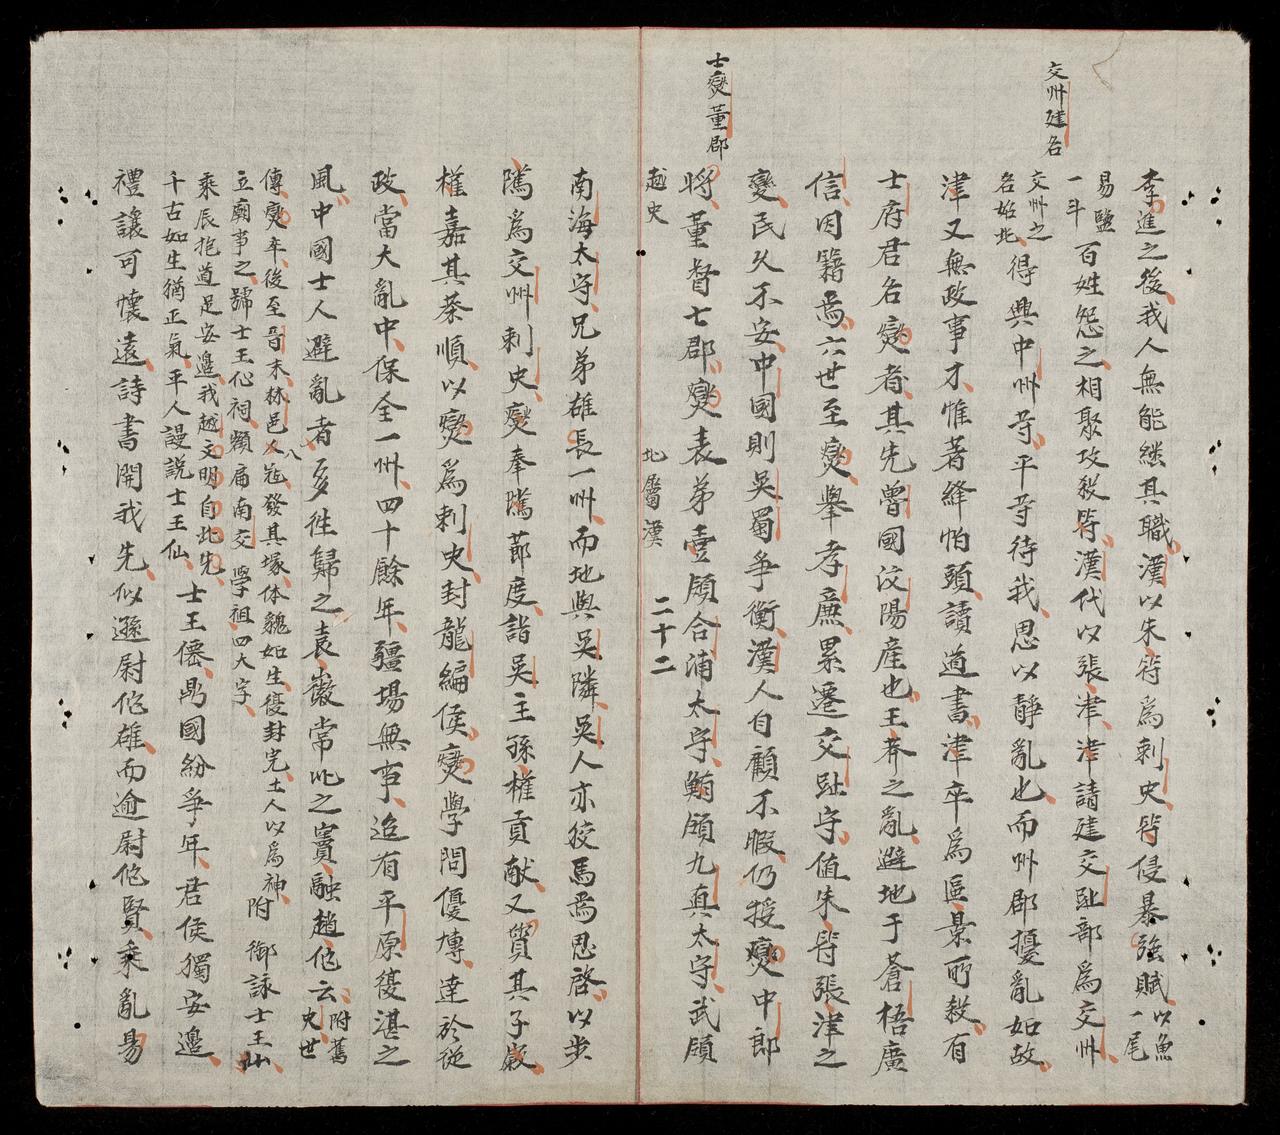 交州建名
士燮董郡
李進之後我人無能継其職漢以朱符爲刺史符侵暴強賦以魚一尾
易鹽一斗百姓怨之相聚攻殺符漢代以張津津請建交趾部爲交州
交州之名始此得與中州等平等待我思以靜亂也而州郡擾亂如故
津又無政事才惟著絳帕頭讀道書津卒爲區景所殺有
士府君名燮者其先魯國汶陽産也王莽之亂避地于蒼梧廣
信因籍焉六世至燮舉孝廉累遷交趾守值朱符張津之
變民久不安中國則吳蜀争衡漢人自顧不暇仍授燮中郎
將董督七郡燮表弟壹領合浦太守䵋領九真太守武領
越史 北屬漢 二十二
南海太守兄弟雄長一州而地與吳隣吳人亦狡焉思啓以步
隲爲交州刺史燮奉隲莭度詣吳主孫權貢献又質其子廞
權嘉其恭順以燮爲刺史封龍編侯燮學問優博達於從
政當大亂中保全一州四十餘年疆場無事迨有平原後湛之
風中國士人避亂者多徃歸之袁徽常比之竇融趙佗云附舊史世
傳燮卒後至晉末林邑入冦發其塚体貌如生復封完土人以爲神附 御詠士王仙
立廟事之號士王仙祠額扁南交學祖四大字
乘辰抱道足安邉我越文明自此先
千古如生猶正氣平人謾説士王仙 士王僊鼎國紛爭年君侯獨安邉
禮讓可懷遠詩書開我先似遜尉佗雄而逾尉佗賢乘亂易